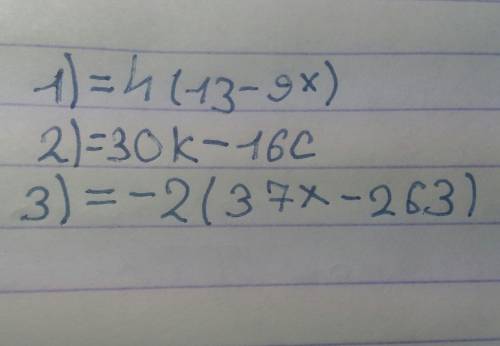 1) = 4(13 - 9x)
2) = 30k - 16c
3) = -2(37x - 263)